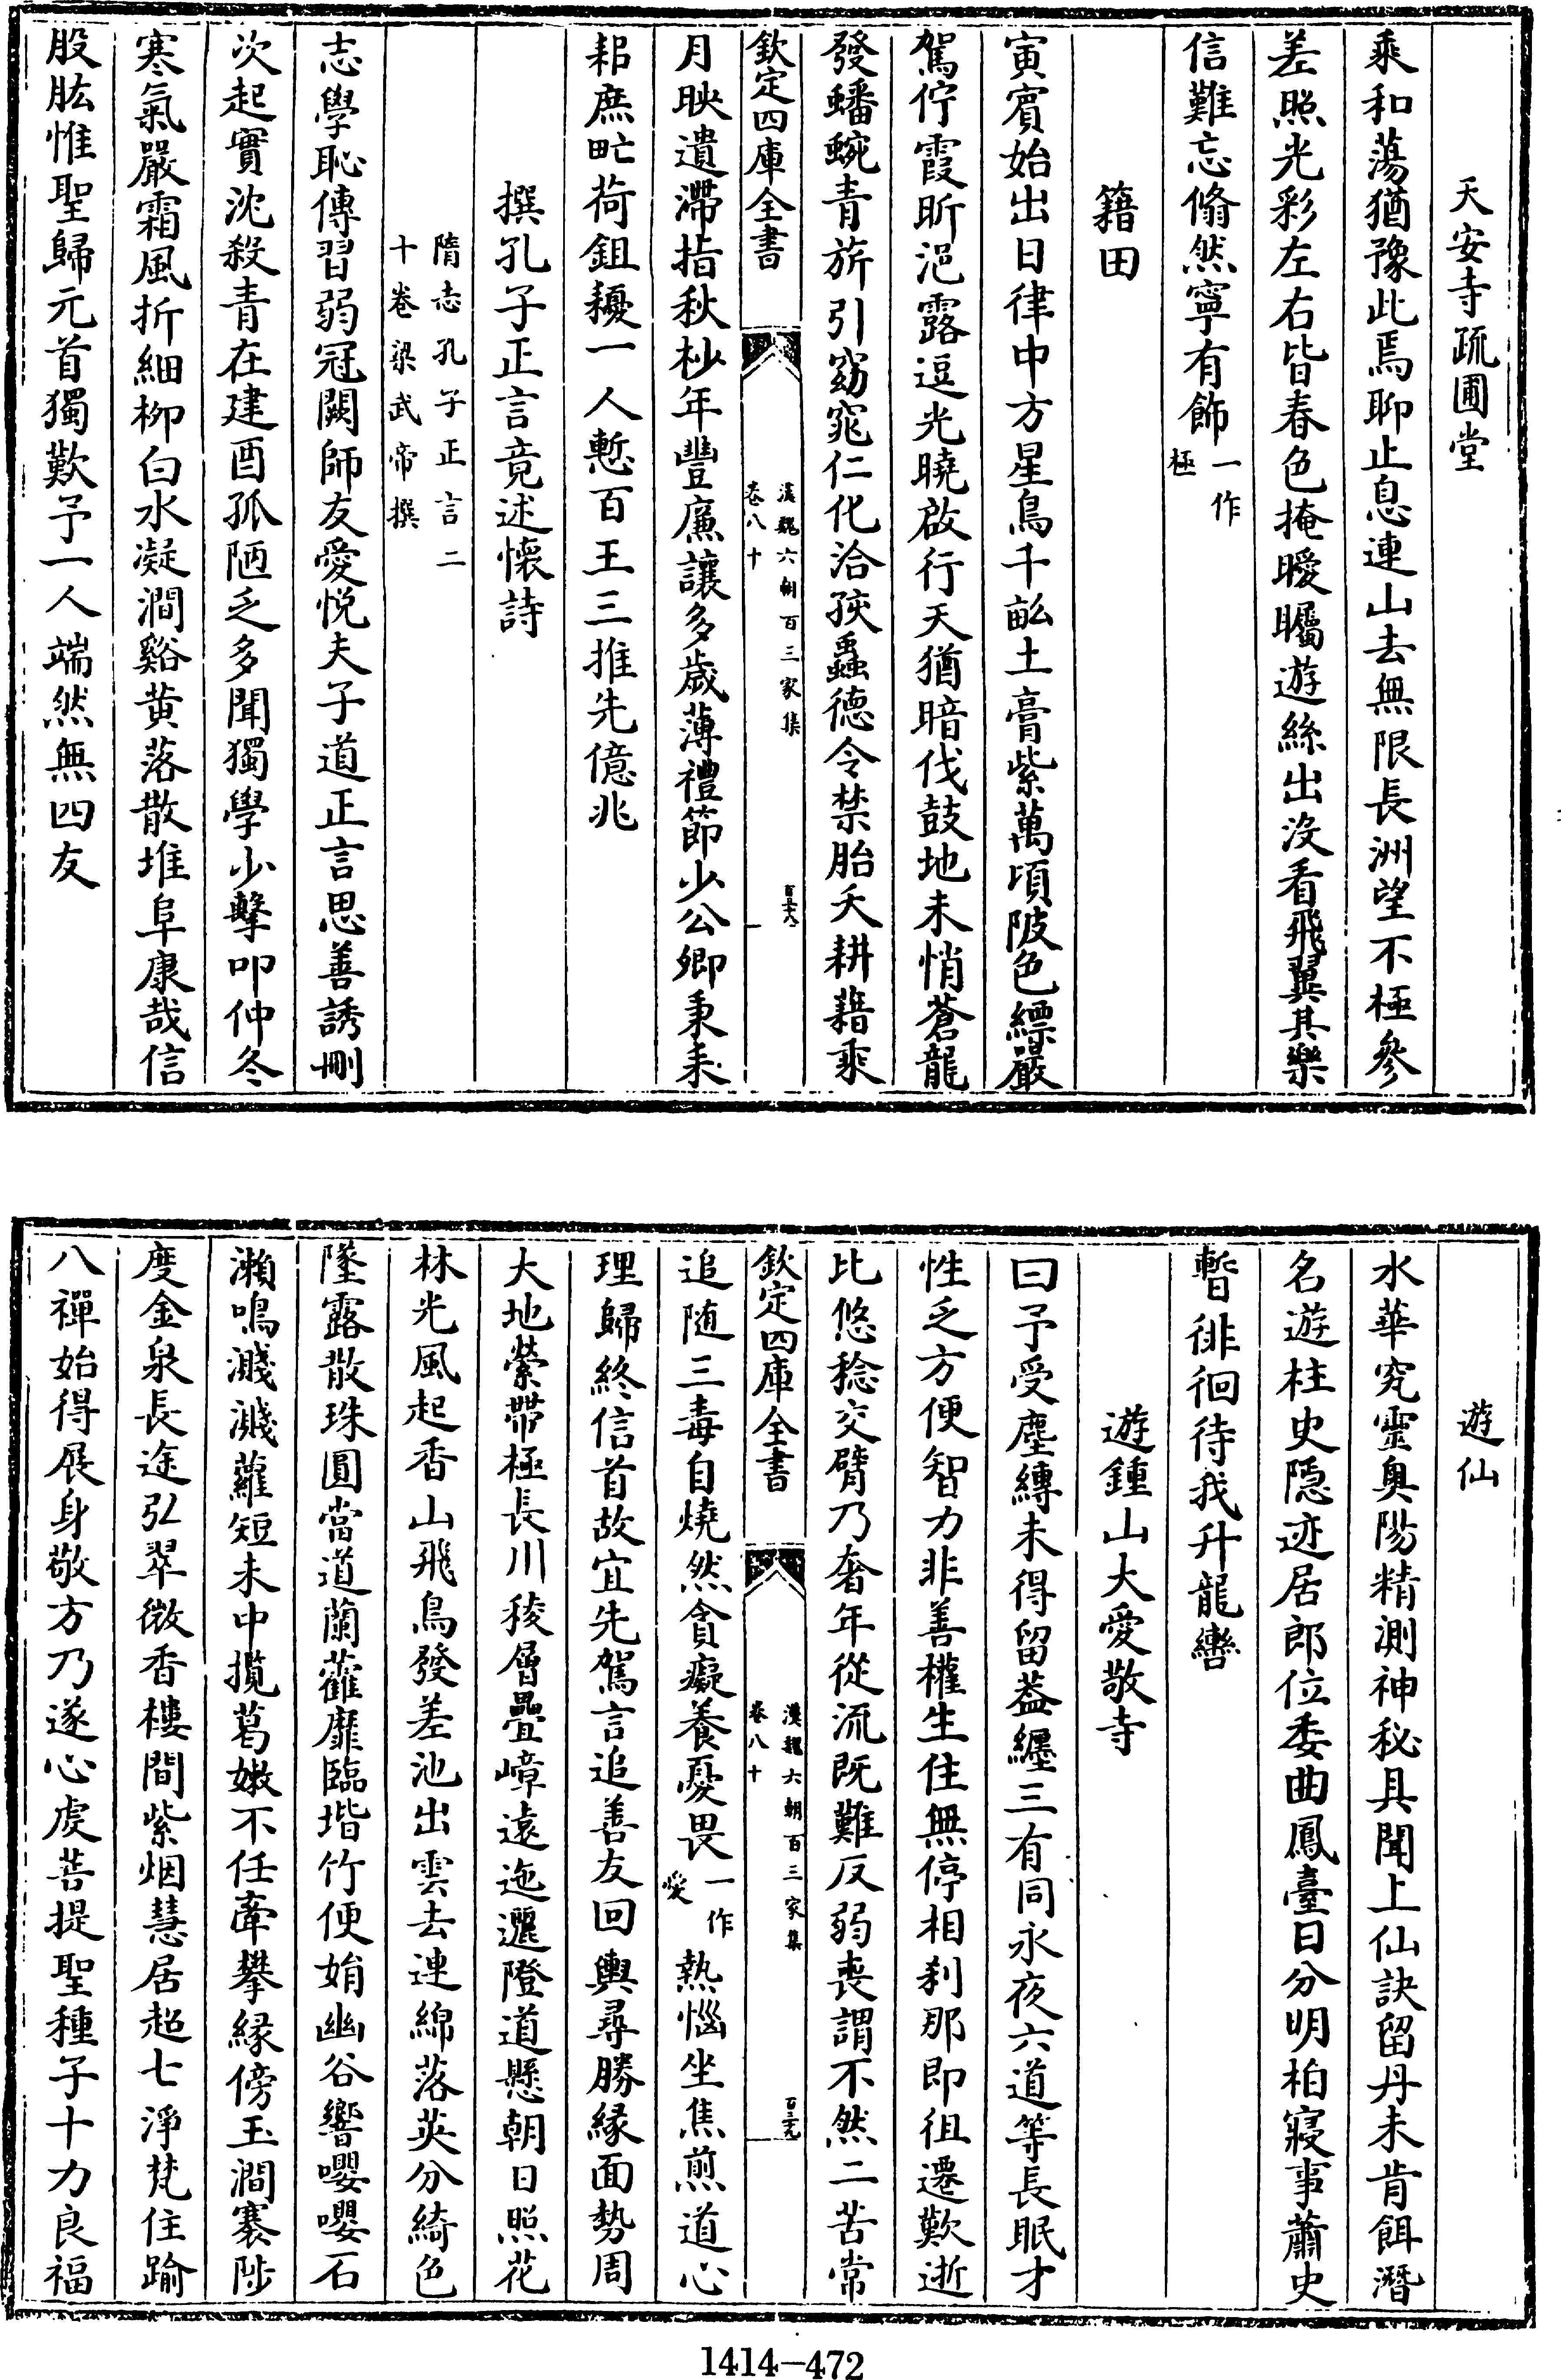 天安寺疏圃堂
乘和蕩猶豫此焉聊止息連山去無限長洲望不極參
差照光彩左右皆春色掩曖矚遊絲出没看飛翼其樂
信難忘翛然寧有飾一作極
籍田
寅賓始出日律中方星鳥千畝土膏紫萬頃陂色縹嚴
駕佇霞昕浥露逗光曉啟行天猶暗伐鼓地未悄蒼龍
發蟠蜿青旂引窈窕仁化洽孩蟲德令禁胎夭耕藉乘
欽定四庫全書
漢魏六朝百三家集
卷八十
百三十八
月映遺滯指秋杪年豐廉讓多歲薄禮節少公卿秉耒
耜庶甿荷鉏耰一人慙百王三推先億兆
撰孔子正言竟述懷詩
隋志孔子正言二
十卷梁武帝撰
志學恥傳習弱冠闕師友愛悅夫子道正言思善誘刪
次起實沈殺青在建酉孤陋乏多聞獨學少擊叩仲冬
寒氣嚴霜風折細柳白水凝澗谿黃落散堆阜康哉信
股肱惟聖歸元首獨歎予一人端然無四友
遊仙
水華究靈奥陽精測神秘具聞上仙訣留丹未肯餌潛
名遊柱史隠迹居郎位委曲鳳臺日分明柏寢事蕭史
暫徘徊待我升龍轡
遊鍾山大愛敬寺
曰予受塵縛未得留葢纏三有同永夜六道等長眠才
性乏方便智力非善權生住無停相刹那即徂遷歎逝
比悠稔交臂乃奢年從流既難反弱喪謂不然二苦常
欽定四庫全書
漢魏六朝百三家集
卷八十
百三十九
追随三毒自燒然貪癡養憂畏一作愛熱惱坐焦煎道心
理歸終信首故宜先駕言追善友回輿尋勝緣面勢周
大地縈帶極長川稜層疊嶂遠迤邐隥道懸朝日照花
林光風起香山飛鳥發差池出雲去連綿落英分綺色
墜露散珠圓當道蘭雚靡臨堦竹便娟幽谷響嚶嚶石
瀨鳴濺濺蘿短未中攬葛嫩不任牽攀緣傍玉澗褰陟
度金泉長途弘翠微香樓間紫烟慧居超七淨梵住踰
八禪始得展身敬方乃遂心虔菩提聖種子十力良福
1414-472